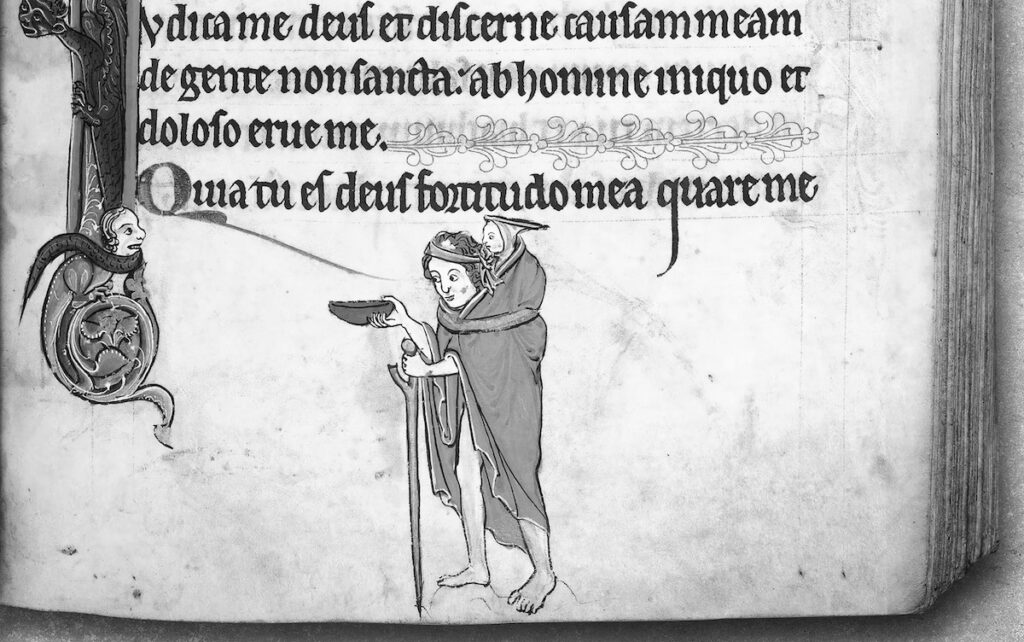 Iudica me deus et discerne causam meam
de gente non sancta: ab homine iniquo et
doloso erue me.
Quia tu es deus fortitudo mea quare me